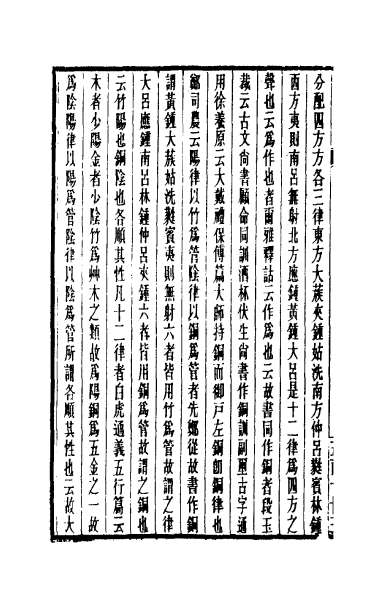 分配四方方各三律東方大蔟夾鍾姑洗南方仲呂蕤賓林鍾
西方夷則南呂無射北方應鍾黃鍾大呂是十二律爲四方之
聲也云爲作也者爾雅釋詁云作爲也云故書同作銅者段玉
裁云古文尙書顧命同訓酒杯伏生尙書作銅訓副璽古字通
用徐養原云大戴禮保傅篇大師持銅而御戸左銅卽銅律也
鄭司農云陽律以竹爲管陰律以銅爲管者先鄭從故書作銅
謂黃鍾大蔟姑洗蕤賓夷則無射六者皆用竹爲管故謂之律
大呂應鍾南呂林鍾仲呂夾鍾六者皆用銅爲管故謂之銅也
云竹陽也銅陰也各順其性凡十二律者白虎通義五行篇云
木者少陽金者少陰竹爲艸木之類故爲陽銅爲五金之一故
爲陰陽律以陽爲管陰律以陰爲管所謂各順其性也云故大